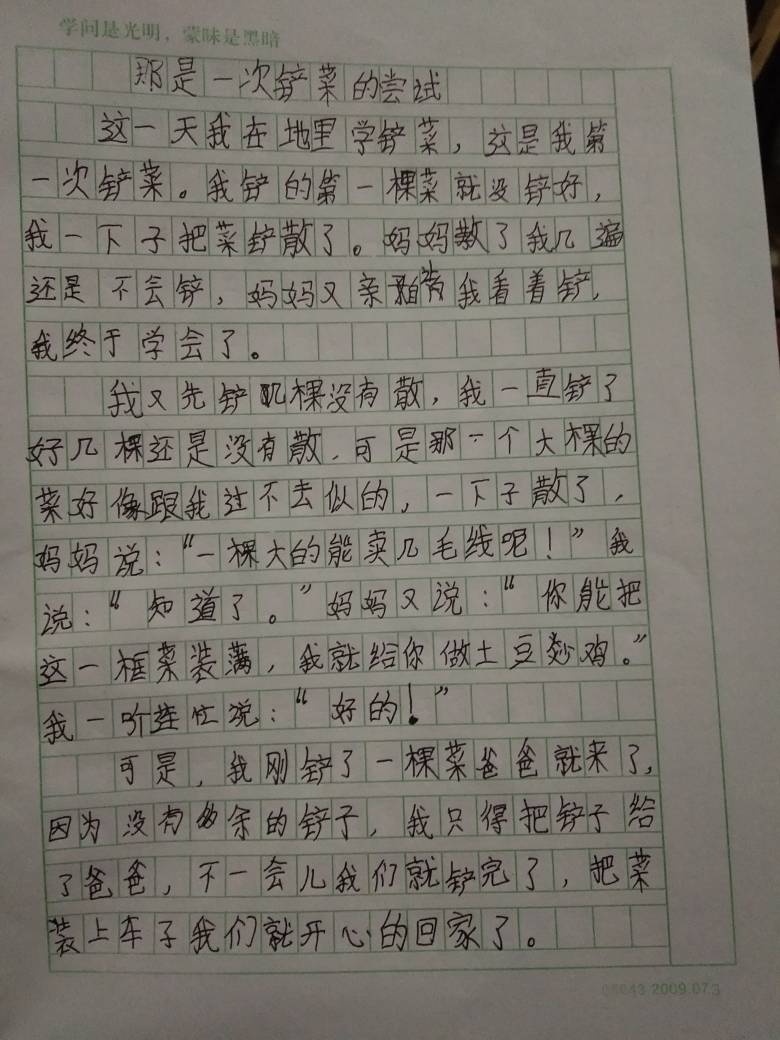 学问是光明，蒙昧是黑暗
那是一次铲菜的尝试
这一天我在地里学铲菜，这是我第
一次铲菜。我铲的第一棵菜就没铲好，
我一下子把菜铲散了。妈妈教了我几遍
还是不会铲，妈妈又亲自带我看着铲，
我终于学会了。
我又先铲几棵没有散，我一直铲了
好几棵还是没有散，可是那一个大棵的
菜好像跟我过不去似的，一下子散了，
妈妈说：“一棵大的能卖几毛线呢！”我
说：“知道了。”妈妈又说：“你能把
这一框菜装满，我就给你做土豆炒鸡。”
我一听连忙说：“好的！”
可是，我刚铲了一棵菜爸爸就来了，
因为没有多余的铲子，我只得把铲子给
了爸爸，不一会儿我们就铲完了，把菜
装上车子我们就开心的回家了。
06043 2009.07.3